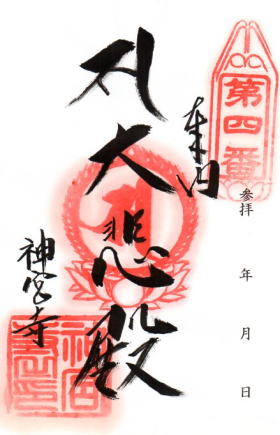 第四番
奉拝
参拝 年 月 日
大悲殿
神宮寺